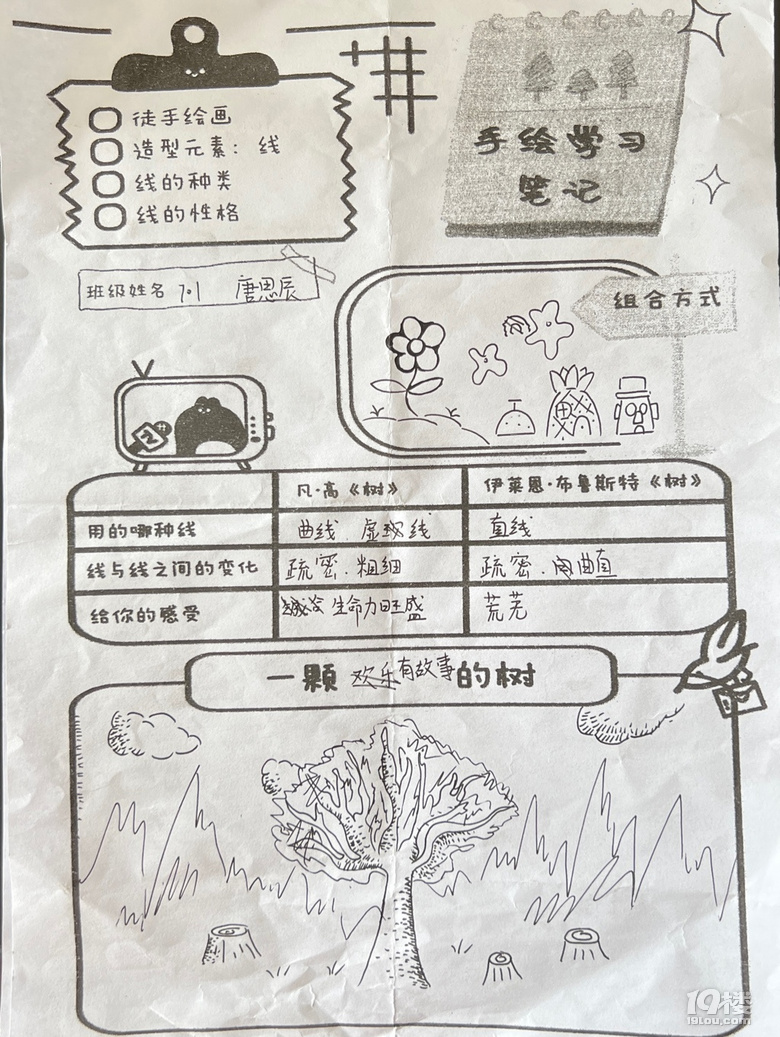 徒手绘画
造型元素：线
线的种类
线的性格
手绘学习
笔记
班级姓名 7.1 唐思辰
组合方式
凡·高《树》 伊莱恩·布鲁斯特《树》
用的哪种线 曲线 虚线 直线
线与线之间的变化 疏密.粗细 疏密.曲直
给你的感受 生命力旺盛 荒芜
一颗欢乐有故事的树
19楼
19lou.com